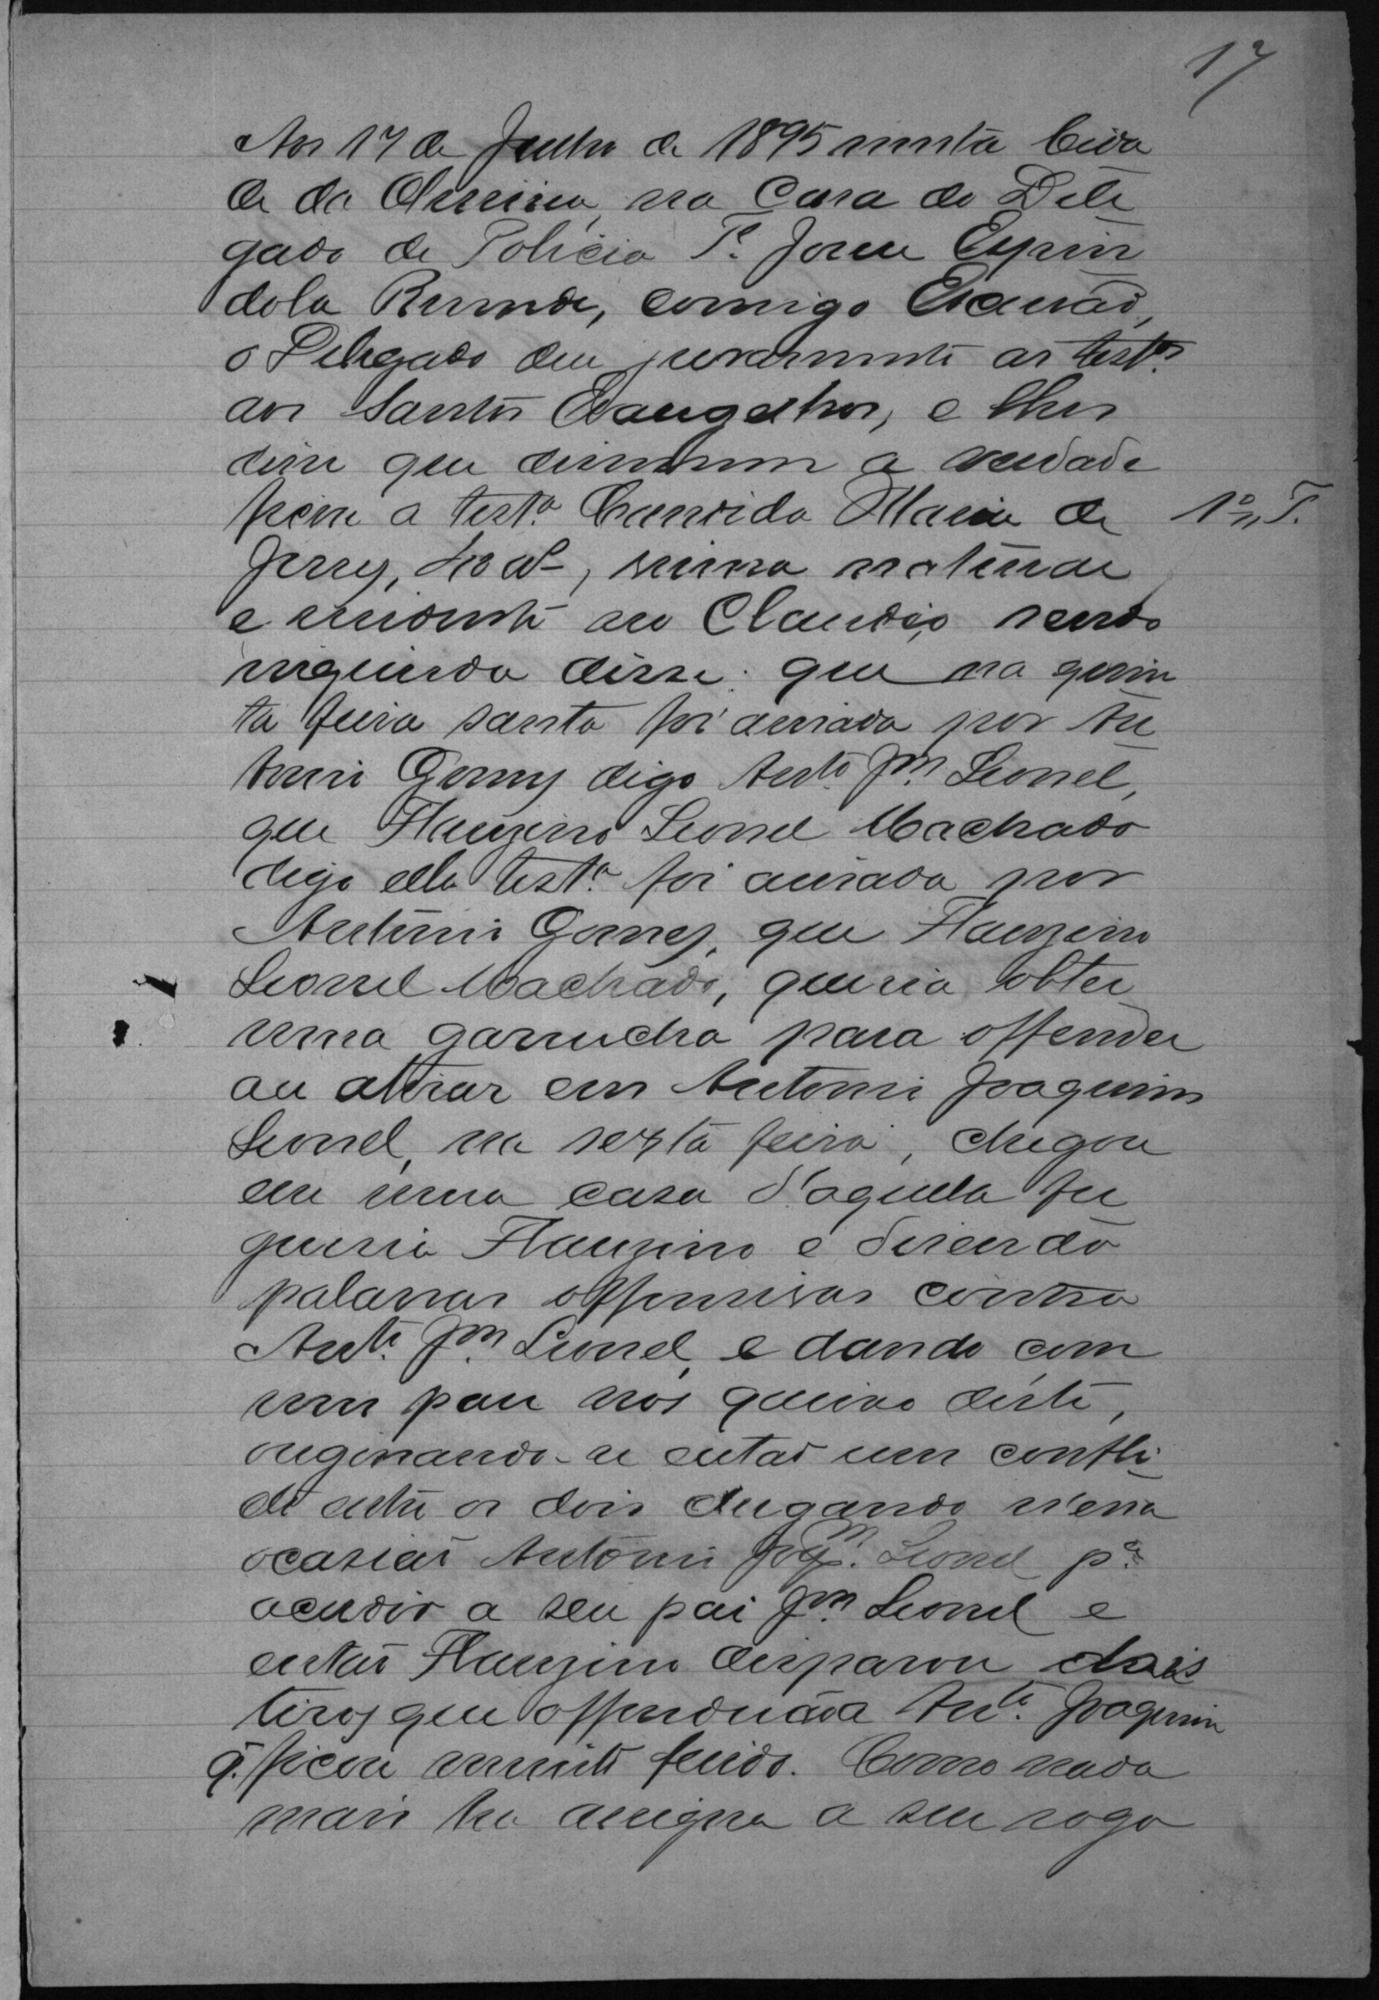 17
Aos 17 de Julho de 1895 nesta Cida
de da Oliveira, na Casa do Dele
gado de Policia Te. Espin
dola, comigo Escrivão,
o Delegado deu juramento as testas.
aos Santos Evangelhos, e lhes
disse que dissessem a verdade
ficou a testa. Candida Maria de 1a T.
Jesus, 40 as, viuva natural
e residente no Claudio sendo
inquirida disse: que na quin
ta feira santa foi avisada por An
tonio Gomes digo Anto. Jm. Leonel,
que Flauzino Leonel Machado
digo ella testa. foi avisada por
Antonio Gomes, que Flauzino
Leonel Machado, queria obter
uma garrucha para offender
ou atirar em Antonio Joaquim
Leonel, na sexta feira, chegou
em uma casa d'aquella fre
guesia Flauzino e disendo
palavras offensivas contra
Anto. Jm. Leonel, e dando com
um pau nos queixo deste,
originando-se então um confli
cto entre os dois chegando n'essa
ocasião Antonio Joqm. Leonel pa.
acudir a seu pai Jm. Leonel e
então Flauzino disparou dois
tiros que offenderão a Anto. Joaquim
q. ficou muito ferido. Como nada
mais ha assigna a seu rogo